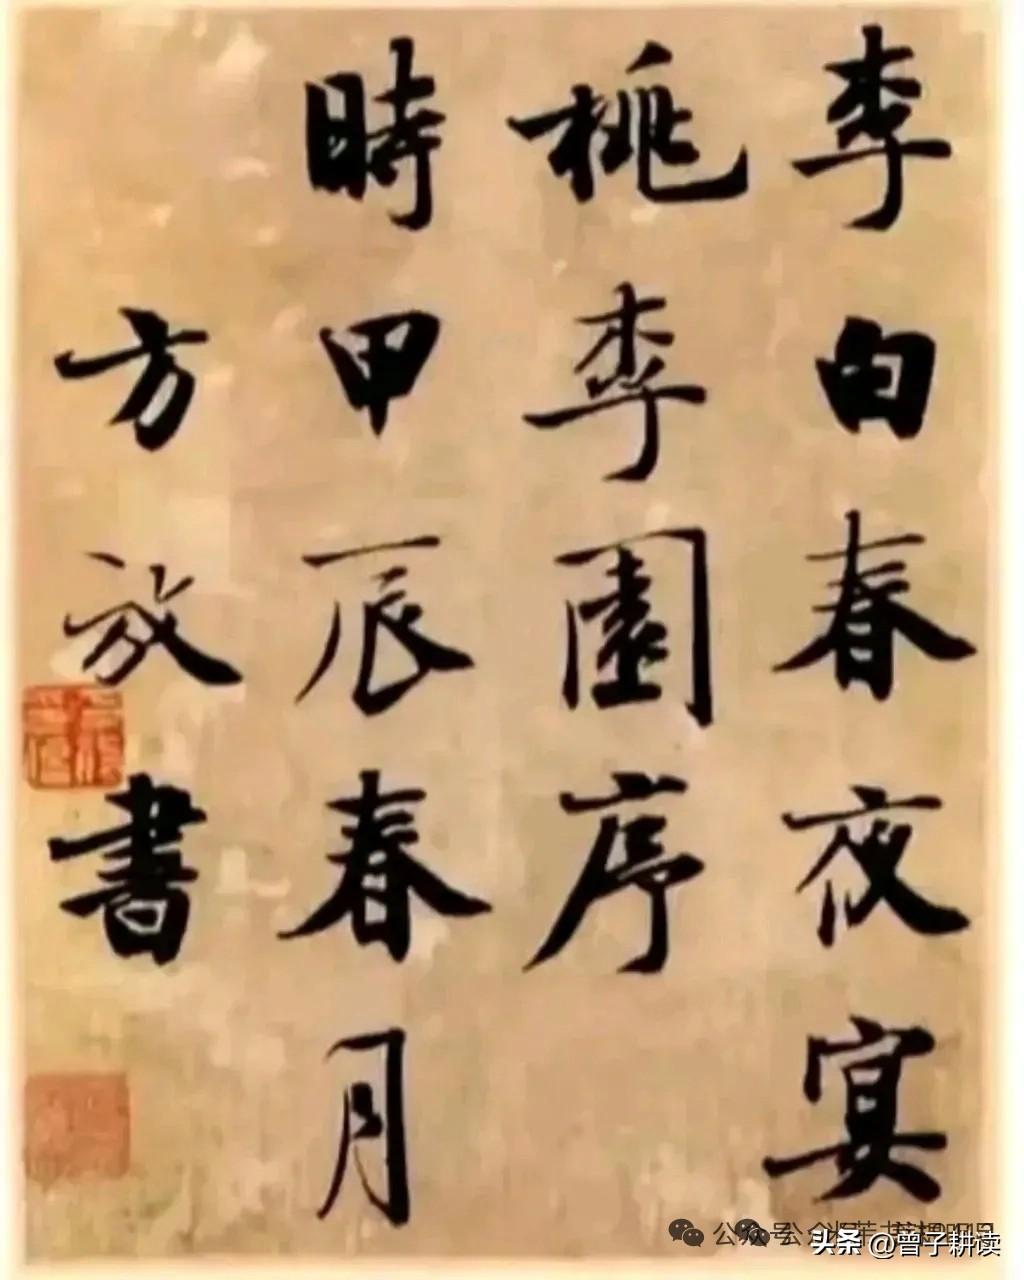 李白春夜宴
桃李園序
時甲辰春月
方放書
公众号
头条 @曾子耕读